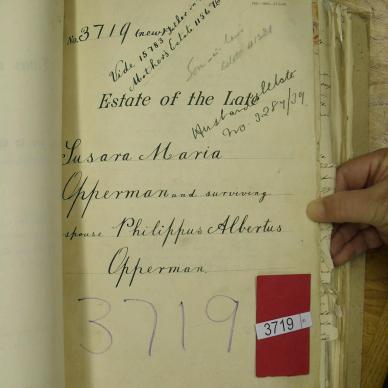 No. 3719
Vide 15783
Mothers Estate 1136/76
Son in law
Estate of the Late
Husbands Estate
No. 3287/39
Susara Maria
Opperman and surviving
spouse Philippus Albertus
Opperman
3719
3719